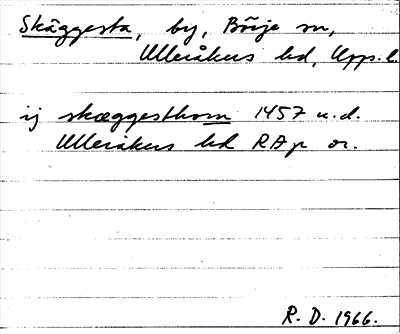 Skäggesta, by, Börje sn,
Ulleråkers hd, Upps. l.
ij skæggesthom 1457 u.d.
Ulleråkers hd RAp or.
R. D. 1966.